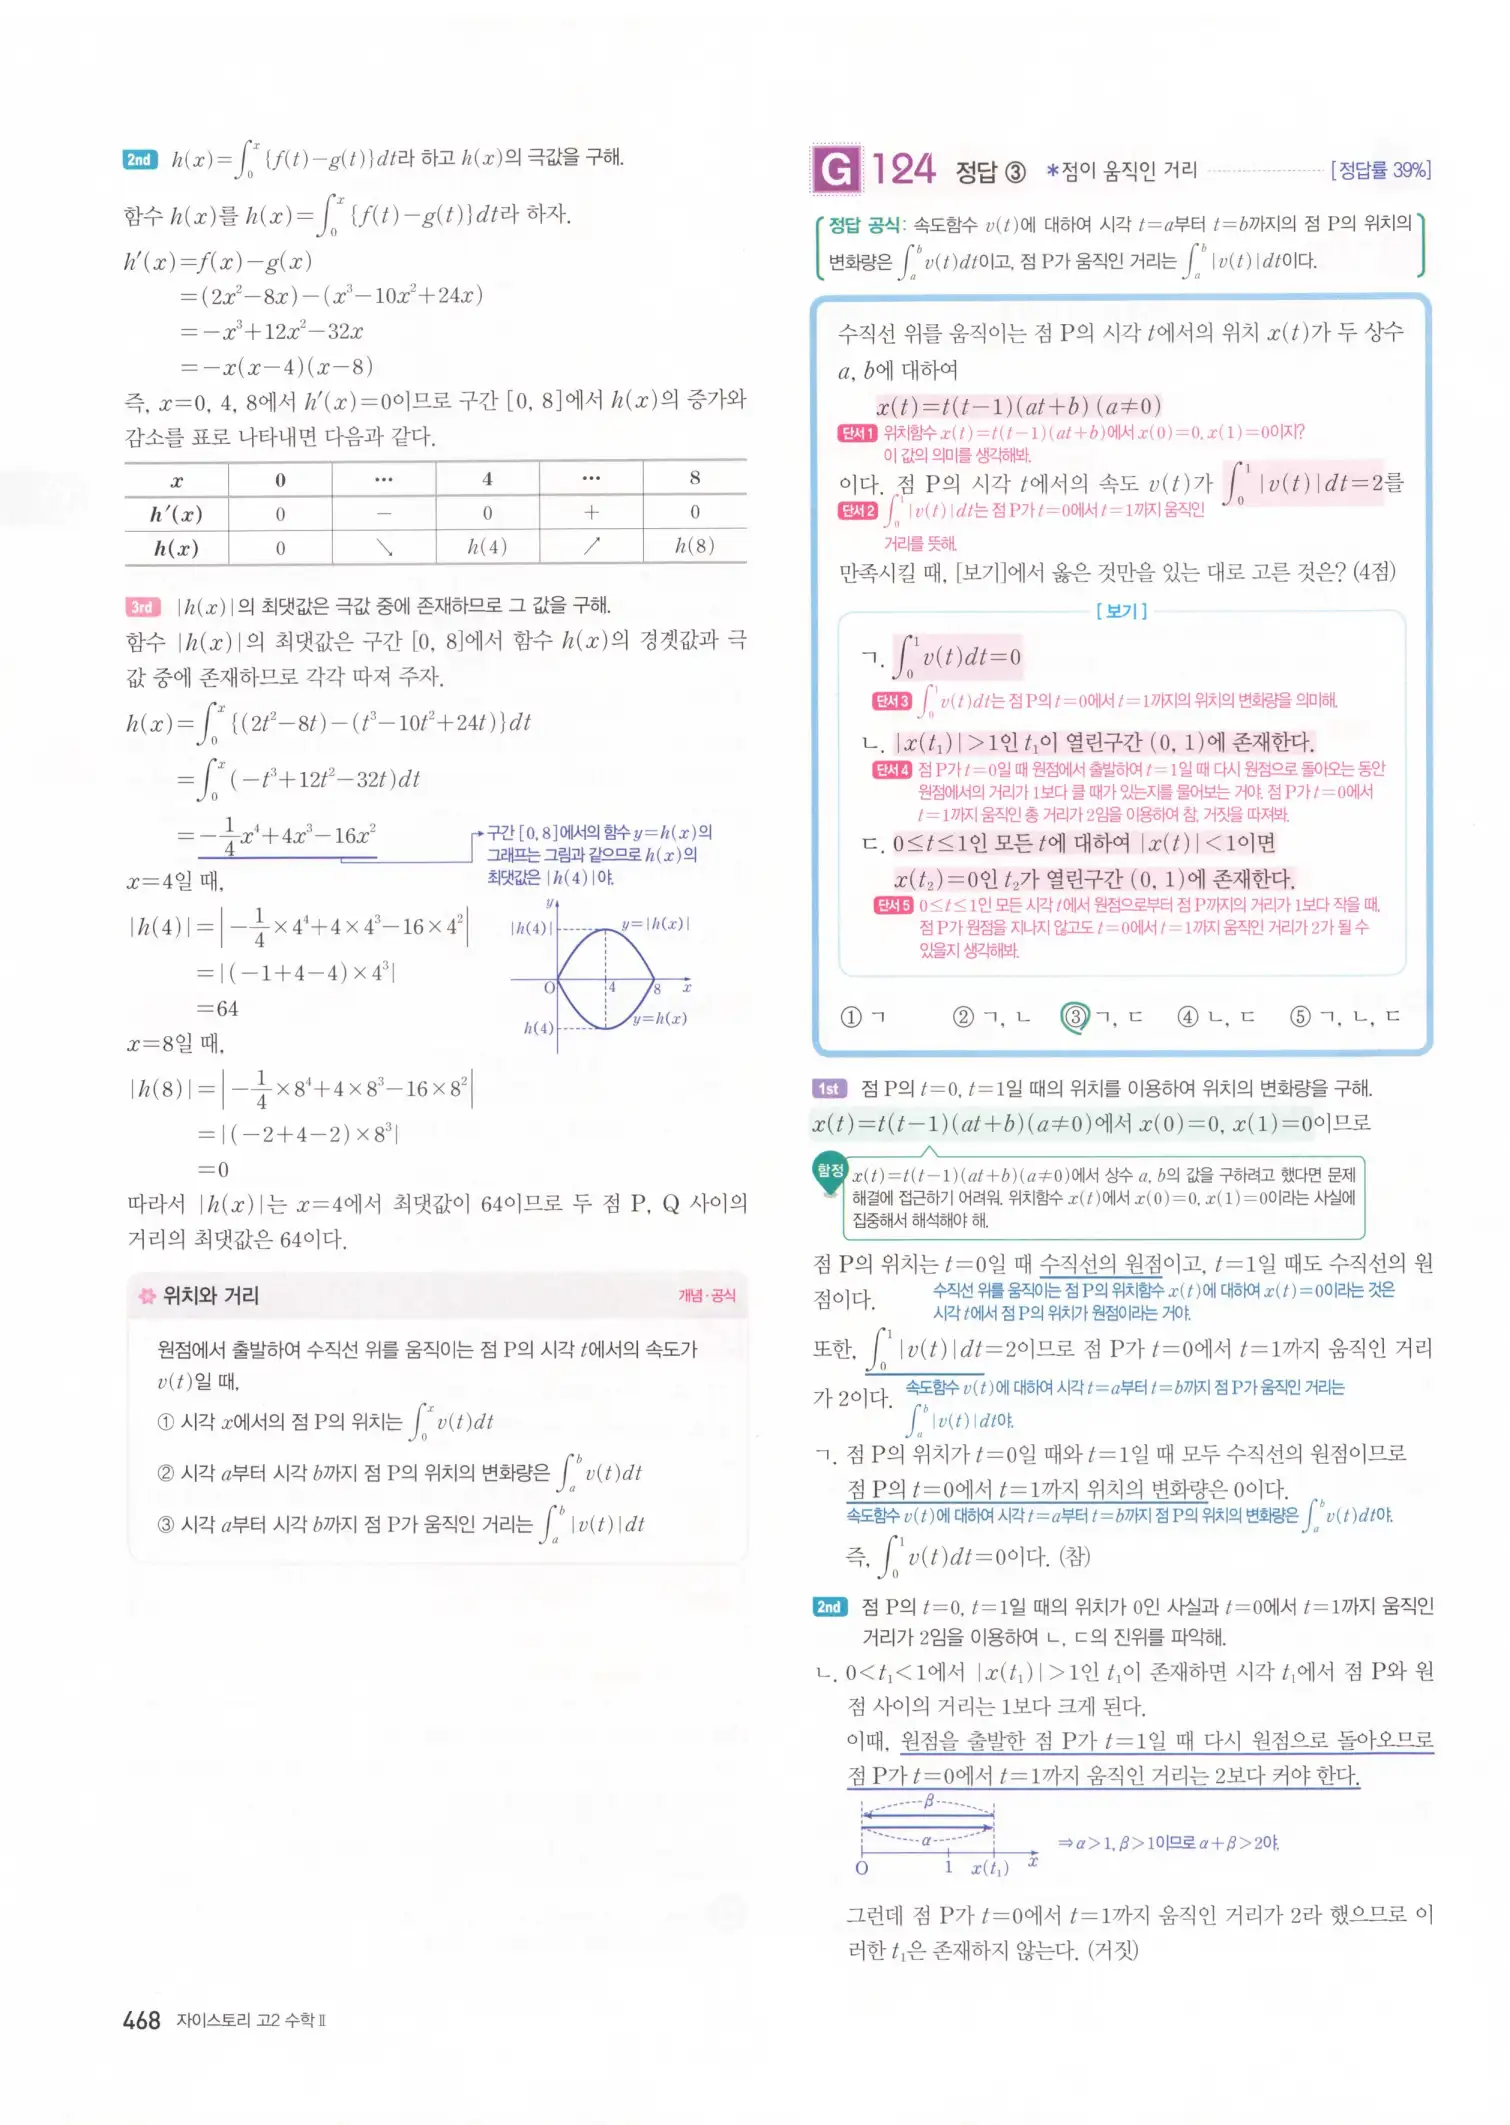 2nd h(x)=∫₀ˣ{f(t)-g(t)}dt라 하고 h(x)의 극값을 구해.
함수 h(x)를 h(x)=∫₀ˣ{f(t)-g(t)}dt라 하자.
h′(x)=f(x)-g(x)
=(2x²-8x)-(x³-10x²+24x)
=-x³+12x²-32x
=-x(x-4)(x-8)
즉, x=0, 4, 8에서 h′(x)=0이므로 구간 [0, 8]에서 h(x)의 증가와
감소를 표로 나타내면 다음과 같다.
x 0 … 4 … 8
h′(x) 0 - 0 + 0
h(x) 0 ↘ h(4) ↗ h(8)
3rd |h(x)|의 최댓값은 극값 중에 존재하므로 그 값을 구해.
함수 |h(x)|의 최댓값은 구간 [0, 8]에서 함수 h(x)의 경곗값과 극
값 중에 존재하므로 각각 따져 주자.
h(x)=∫₀ˣ{(2t²-8t)-(t³-10t²+24t)}dt
=∫₀ˣ(-t³+12t²-32t)dt
=-1/4x⁴+4x³-16x²
구간 [0, 8]에서의 함수 y=h(x)의
그래프는 그림과 같으므로 h(x)의
최댓값은 |h(4)|야.
x=4일 때,
|h(4)|=|-1/4×4⁴+4×4³-16×4²|
=|(-1+4-4)×4³|
=64
y
|h(4)| y=|h(x)|
O 4 8 x
h(4) y=h(x)
x=8일 때,
|h(8)|=|-1/4×8⁴+4×8³-16×8²|
=|(-2+4-2)×8³|
=0
따라서 |h(x)|는 x=4에서 최댓값이 64이므로 두 점 P, Q 사이의
거리의 최댓값은 64이다.
위치와 거리 개념·공식
원점에서 출발하여 수직선 위를 움직이는 점 P의 시각 t에서의 속도가
v(t)일 때,
① 시각 x에서의 점 P의 위치는 ∫₀ˣv(t)dt
② 시각 a부터 시각 b까지 점 P의 위치의 변화량은 ∫ₐᵇv(t)dt
③ 시각 a부터 시각 b까지 점 P가 움직인 거리는 ∫ₐᵇ|v(t)|dt
468 자이스토리 고2 수학Ⅱ
G 124 정답 ③ *점이 움직인 거리 [정답률 39%]
정답 공식: 속도함수 v(t)에 대하여 시각 t=a부터 t=b까지의 점 P의 위치의
변화량은 ∫ₐᵇv(t)dt이고, 점 P가 움직인 거리는 ∫ₐᵇ|v(t)|dt이다.
수직선 위를 움직이는 점 P의 시각 t에서의 위치 x(t)가 두 상수
a, b에 대하여
x(t)=t(t-1)(at+b) (a≠0)
단서1 위치함수 x(t)=t(t-1)(at+b)에서 x(0)=0, x(1)=0이지?
이 값의 의미를 생각해봐.
이다. 점 P의 시각 t에서의 속도 v(t)가 ∫₀¹|v(t)|dt=2를
단서2 ∫₀¹|v(t)|dt는 점 P가 t=0에서 t=1까지 움직인
거리를 뜻해.
만족시킬 때, [보기]에서 옳은 것만을 있는 대로 고른 것은? (4점)
[보기]
ㄱ. ∫₀¹v(t)dt=0
단서3 ∫₀¹v(t)dt는 점 P의 t=0에서 t=1까지의 위치의 변화량을 의미해.
ㄴ. |x(t₁)|>1인 t₁이 열린구간 (0, 1)에 존재한다.
단서4 점 P가 t=0일 때 원점에서 출발하여 t=1일 때 다시 원점으로 돌아오는 동안
원점에서의 거리가 1보다 클 때가 있는지를 물어보는 거야. 점 P가 t=0에서
t=1까지 움직인 총 거리가 2임을 이용하여 참, 거짓을 따져봐.
ㄷ. 0≤t≤1인 모든 t에 대하여 |x(t)|<1이면
x(t₂)=0인 t₂가 열린구간 (0, 1)에 존재한다.
단서5 0≤t≤1인 모든 시각 t에서 원점으로부터 점 P까지의 거리가 1보다 작을 때,
점 P가 원점을 지나지 않고도 t=0에서 t=1까지 움직인 거리가 2가 될 수
있을지 생각해봐.
① ㄱ ② ㄱ, ㄴ ③ ㄱ, ㄷ ④ ㄴ, ㄷ ⑤ ㄱ, ㄴ, ㄷ
1st 점 P의 t=0, t=1일 때의 위치를 이용하여 위치의 변화량을 구해.
x(t)=t(t-1)(at+b)(a≠0)에서 x(0)=0, x(1)=0이므로
함정 x(t)=t(t-1)(at+b)(a≠0)에서 상수 a, b의 값을 구하려고 했다면 문제
해결에 접근하기 어려워. 위치함수 x(t)에서 x(0)=0, x(1)=0이라는 사실에
집중해서 해석해야 해.
점 P의 위치는 t=0일 때 수직선의 원점이고, t=1일 때도 수직선의 원
점이다.
수직선 위를 움직이는 점 P의 위치함수 x(t)에 대하여 x(t)=0이라는 것은
시각 t에서 점 P의 위치가 원점이라는 거야.
또한, ∫₀¹|v(t)|dt=2이므로 점 P가 t=0에서 t=1까지 움직인 거리
가 2이다.
속도함수 v(t)에 대하여 시각 t=a부터 t=b까지 점 P가 움직인 거리는
∫ₐᵇ|v(t)|dt야.
ㄱ. 점 P의 위치가 t=0일 때와 t=1일 때 모두 수직선의 원점이므로
점 P의 t=0에서 t=1까지 위치의 변화량은 0이다.
속도함수 v(t)에 대하여 시각 t=a부터 t=b까지 점 P의 위치의 변화량은 ∫ₐᵇv(t)dt야.
즉, ∫₀¹v(t)dt=0이다. (참)
2nd 점 P의 t=0, t=1일 때의 위치가 0인 사실과 t=0에서 t=1까지 움직인
거리가 2임을 이용하여 ㄴ, ㄷ의 진위를 파악해.
ㄴ. 0<t₁<1에서 |x(t₁)|>1인 t₁이 존재하면 시각 t₁에서 점 P와 원
점 사이의 거리는 1보다 크게 된다.
이때, 원점을 출발한 점 P가 t=1일 때 다시 원점으로 돌아오므로
점 P가 t=0에서 t=1까지 움직인 거리는 2보다 커야 한다.
β
α ⇒α>1, β>1이므로 α+β>2야.
O 1 x(t₁) x
그런데 점 P가 t=0에서 t=1까지 움직인 거리가 2라 했으므로 이
러한 t₁은 존재하지 않는다. (거짓)